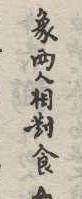 象兩人相對食